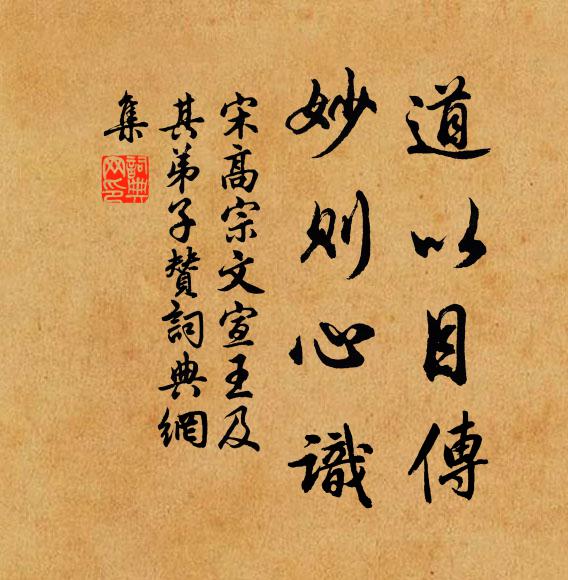 道以目傳
妙則心識
宋高宗文宣王及
其弟子贊詞典網
集
詞典网印